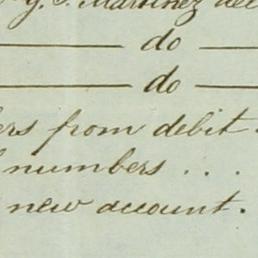 y. S. Martinez
do
do
from debit
numbers . . .
new account.